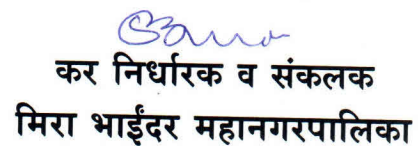 कर निर्धारक व संकलक
मिरा भाईंदर महानगरपालिका